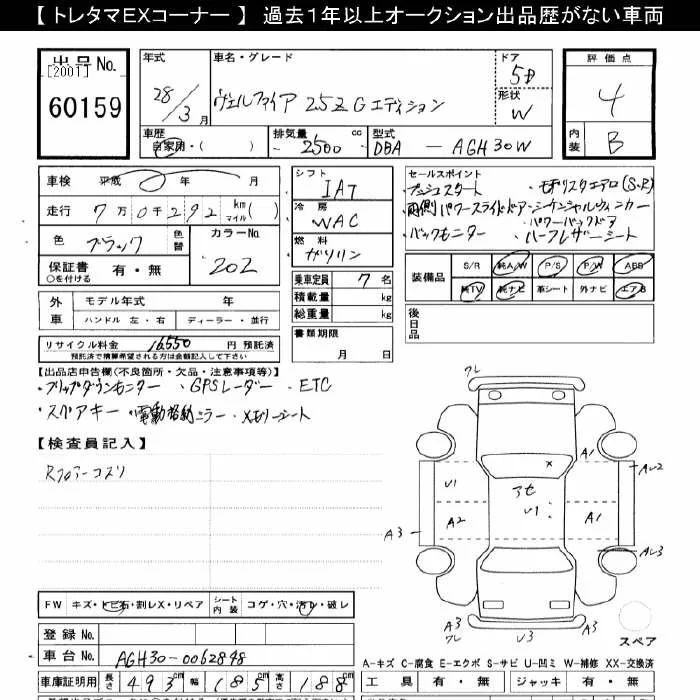 【 トレタマEXコーナー 】 過去1年以上オークション出品歴がない車両
出品No.
[2001]
60159
年式
28/3月
車名・グレード
ヴェルファイア 2.5Z Gエディション
ドア
5D
形状
W
評価点
4
内装
B
車歴
自家用・( )
排気量
2500 cc
型式
DBA - AGH30W
車検 平成 年 月
走行 7万0千292 km マイル( )
色 ブラック 色替
カラーNo.
202
保証書
○を付ける
有・無
シフト
IAT
冷房
WAC
燃料
ガソリン
セールスポイント
・プッシュスタート ・モデリスタエアロ(S.R)
・両側パワースライドドア・シーケンシャルウィンカー
・パワーバックドア
・バックモニター ・ハーフレザーシート
装備品
S/R 純A/W P/S P/W ABS
純TV 純ナビ 革シート 外ナビ エアB
外車
モデル年式 年
ハンドル 左・右 ディーラー・並行
乗車定員 7名
積載量 kg
総重量 kg
後日品
リサイクル料金 16,550 円 預託済
預託済で精算希望される方は金額記入して下さい
書類期限
月 日
【出品店申告欄(不良箇所・欠品・注意事項等)】
・フリップダウンモニター ・GPSレーダー ・ETC
・スペアキー ・電動格納ミラー ・メモリーシート
【検査員記入】
Rフロアーコスリ
ワレ
A1
AL2
U1
アセ
U1
A2
A1
A3
AL3
A3
ワレ
U3
A3
ワレ
スペア
FW キズ・トビ石・割レX・リペア
シート内装 コゲ・穴・汚レ・破レ
登録No.
車台No. AGH30-0062848
A-キズ C-腐食 E-エクボ S-サビ U-凹ミ W-補修 XX-交換済
車庫証明用 長さ 493cm 幅 185cm 高さ 188cm
工具 有・無 ジャッキ 有・無